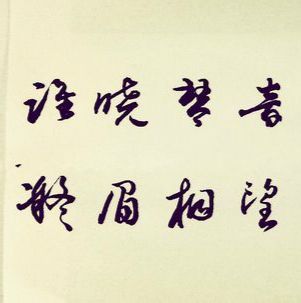 谁晓琴音
凝眉相望